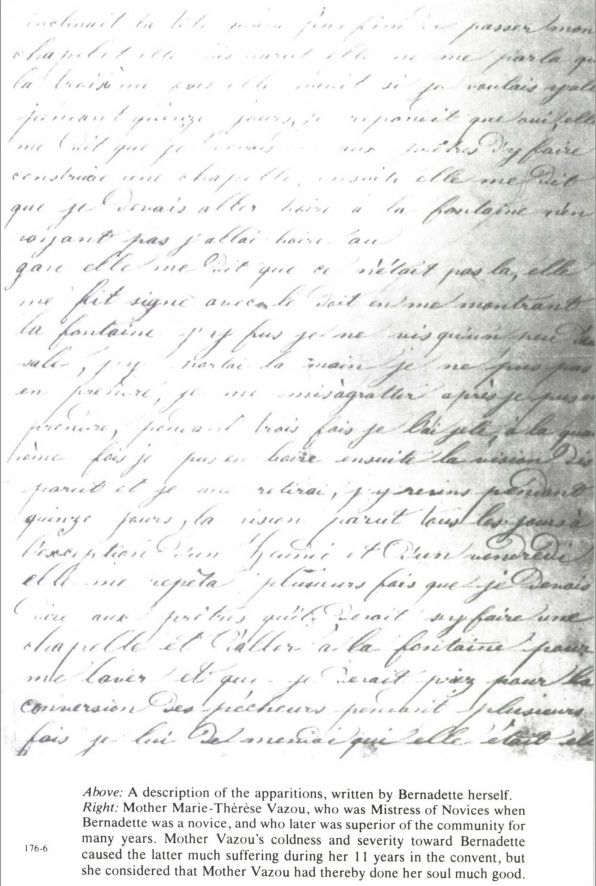 inclinait la tête passer mon
chapelet elle disparut elle ne me parla que
la troisième fois elle me dit si je voulais y aller
pendant quinze jours, je reponoit que oui, elle
me dit que je devais aux prêtres d'y faire
construire une chapelle, ensuite elle me dit
que je devais aller boire à la fontaine n'en
voyant pas j'allai boire au
gave elle me dit que ce n'était pas la, elle
me fit signe avec le doit en me montrant
la fontaine j'y fus je ne vis qu'un peu
sale, j'y portai la main je ne pus pas
en prendre, je me mis à gratter après je pus en
prendre, pendant trois fois je l'ai jetée, à la quat
ième fois je pus en boire ensuite la vision dis
parut et je me retirai, j'y revins pendant
quinze jours, la vision parut tous les jours à
l'exception d'un et d'un vendredi
elle me repéta plusieurs fois que je devais
dire aux prêtres qu'il devait s'y faire une
chapelle et d'aller à la fontaine pour
me laver et que je devait priez pour la
conversion des pécheurs pendant plusieurs
fois je lui demandai qui elle était
Above: A description of the apparitions, written by Bernadette herself.
Right: Mother Marie-Thérèse Vazou, who was Mistress of Novices when
Bernadette was a novice, and who later was superior of the community for
many years. Mother Vazou's coldness and severity toward Bernadette
176-6 caused the latter much suffering during her 11 years in the convent, but
she considered that Mother Vazou had thereby done her soul much good.